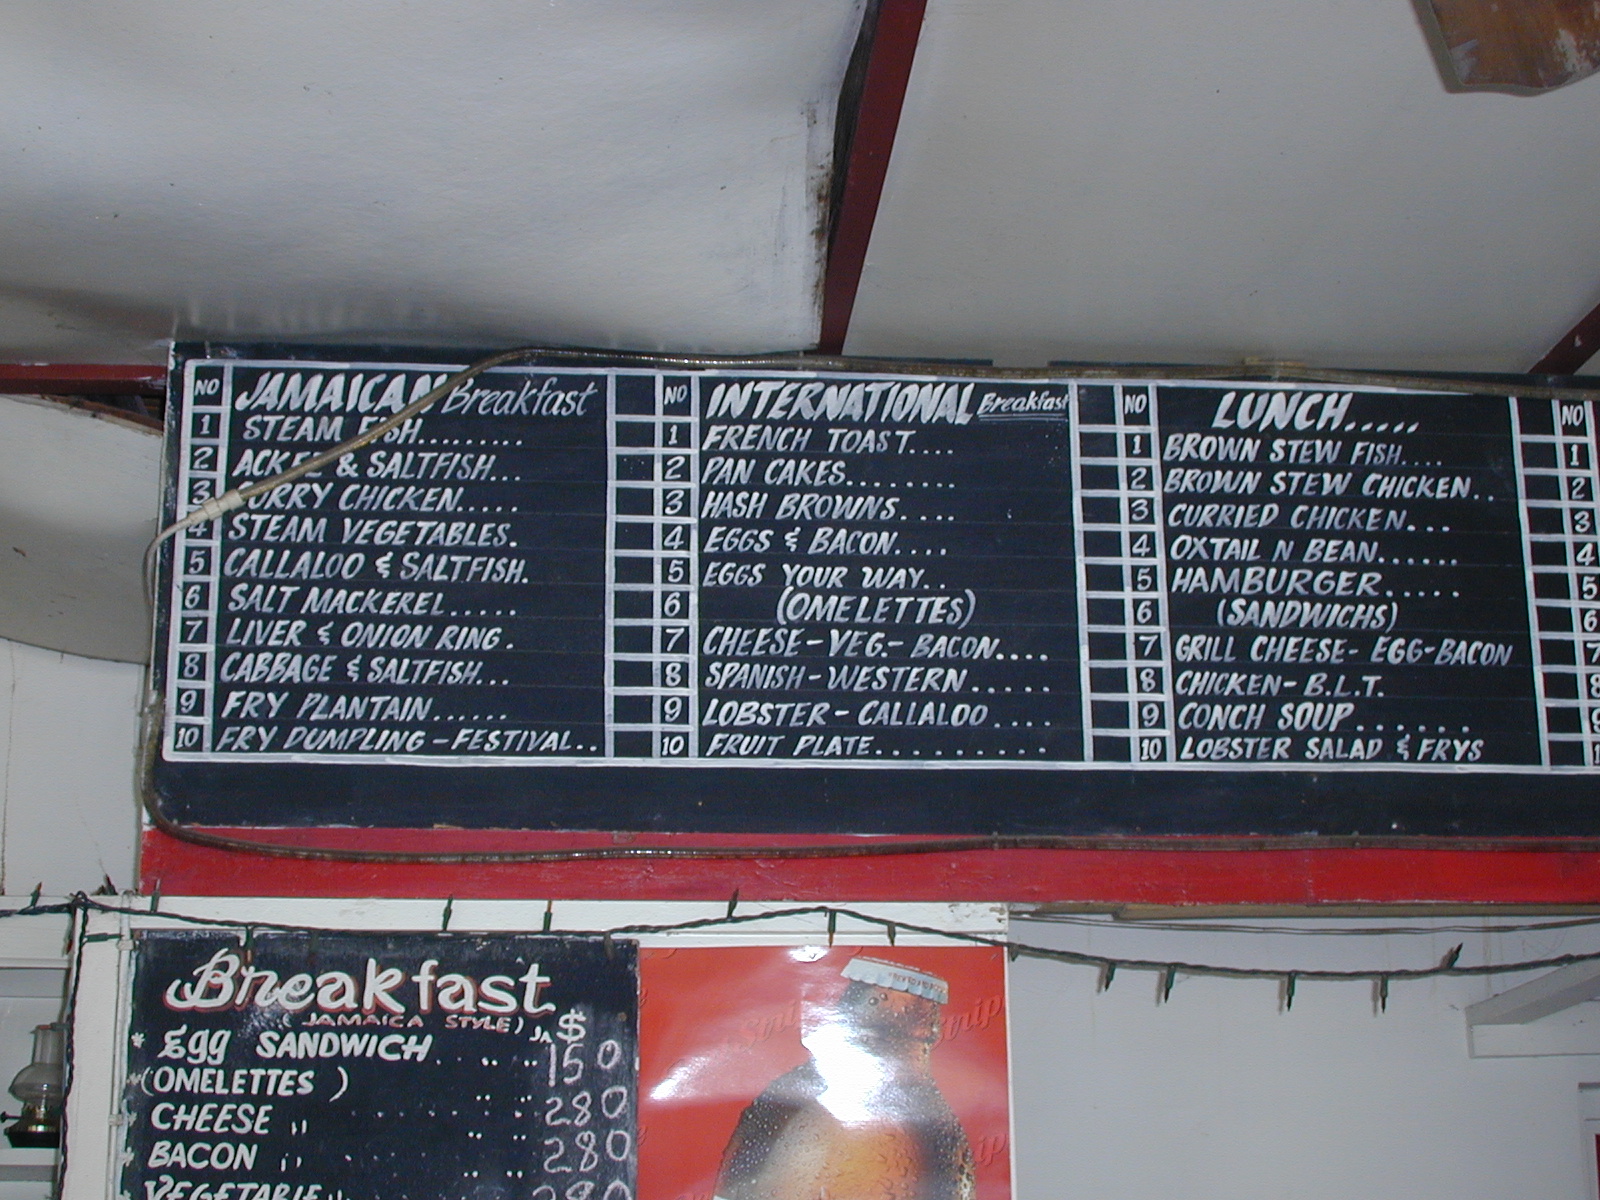 NO JAMAICAN Breakfast
1 STEAM FISH.........
2 ACKEE & SALTFISH...
3 CURRY CHICKEN.....
4 STEAM VEGETABLES.
5 CALLALOO & SALTFISH.
6 SALT MACKEREL.....
7 LIVER & ONION RING.
8 CABBAGE & SALTFISH...
9 FRY PLANTAIN......
10 FRY DUMPLING - FESTIVAL..
NO INTERNATIONAL Breakfast
1 FRENCH TOAST....
2 PAN CAKES........
3 HASH BROWNS....
4 EGGS & BACON....
5 EGGS YOUR WAY..
6 (OMELETTES)
7 CHEESE-VEG.-BACON....
8 SPANISH-WESTERN.....
9 LOBSTER-CALLALOO....
10 FRUIT PLATE.........
NO LUNCH.....
1 BROWN STEW FISH....
2 BROWN STEW CHICKEN..
3 CURRIED CHICKEN...
4 OXTAIL N BEAN......
5 HAMBURGER.....
6 (SANDWICHS)
7 GRILL CHEESE-EGG-BACON
8 CHICKEN-B.L.T.
9 CONCH SOUP.......
10 LOBSTER SALAD & FRYS
NO
1
2
3
4
5
6
7
8
Breakfast
(JAMAICA STYLE) JA $
* Egg SANDWICH 150
* (OMELETTES)
* CHEESE " 280
* BACON " 280
* VEGETABLE " 280